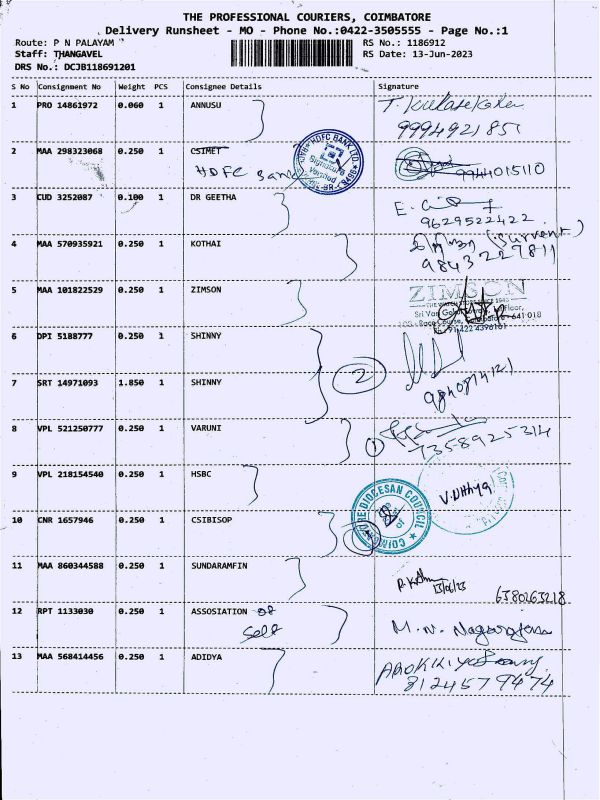 THE PROFESSIONAL COURIERS, COIMBATORE
Delivery Runsheet - MO - Phone No.:0422-3505555 - Page No.:1
Route: P N PALAYAM RS No.: 1186912
Staff: THANGAVEL RS Date: 13-Jun-2023
DRS No.: DCJB118691201
S No Consignment No Weight PCS Consignee Details Signature
1 PRO 14861972 0.060 1 ANNUSU
2 MAA 298323068 0.250 1 CSIMET
HDFC Bank 9944015110
HDFC BANK LTD.
Signature Verified
3 CUD 3252087 0.100 1 DR GEETHA
9629522422
4 MAA 570935921 0.250 1 KOTHAI (Survent)
9843227811
5 MAA 101822529 0.250 1 ZIMSON ZIMSON
6 DPI 5188777 0.250 1 SHINNY
2
7 SRT 14971093 1.850 1 SHINNY
8 VPL 521250777 0.250 1 VARUNI
1 7358925314
9 VPL 218154540 0.250 1 HSBC
V.Dithya
10 CNR 1657946 0.250 1 CSIBISOP
DIOCESAN COUNCIL
11 MAA 860344588 0.250 1 SUNDARAMFIN
13/06/23 6380263218
12 RPT 1133030 0.250 1 ASSOSIATION OF
Self M. N. Nagarajan
13 MAA 568414456 0.250 1 ADIDYA
8124579474